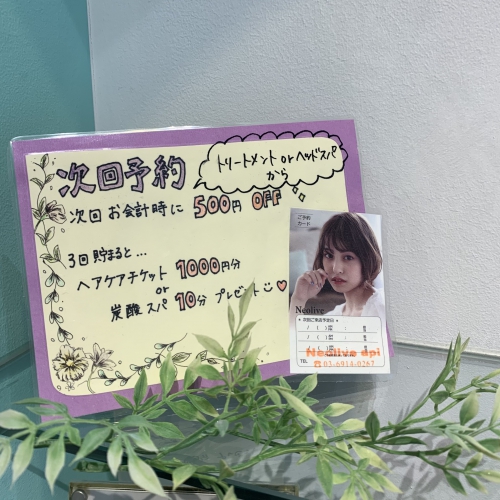 次回予約
トリートメント or ヘッドスパ
から
次回 お会計時に 500円 OFF
3回貯まると...
ヘアケアチケット 1000円分
or
炭酸スパ 10分 プレゼント
ご予約
カード
Neolive
/ ( )曜 :
/ ( )曜 :
/ ( )曜 :
Neolive dpi
TEL
☎03-6914-0267